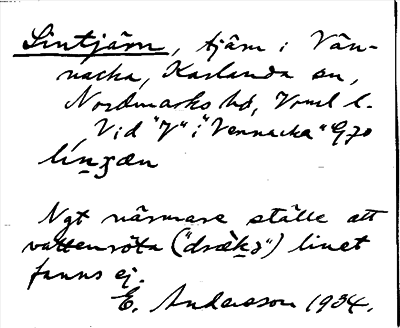 Lintjärn, tjärn i Vän-
nacka, Karlanda sn,
Nordmarks hd, Vrml l.
Vid "V" i "Vennacka" G70
Något närmare ställe att
vattenröta ("dräka") linet
fanns ej.
E. Andersson 1934.